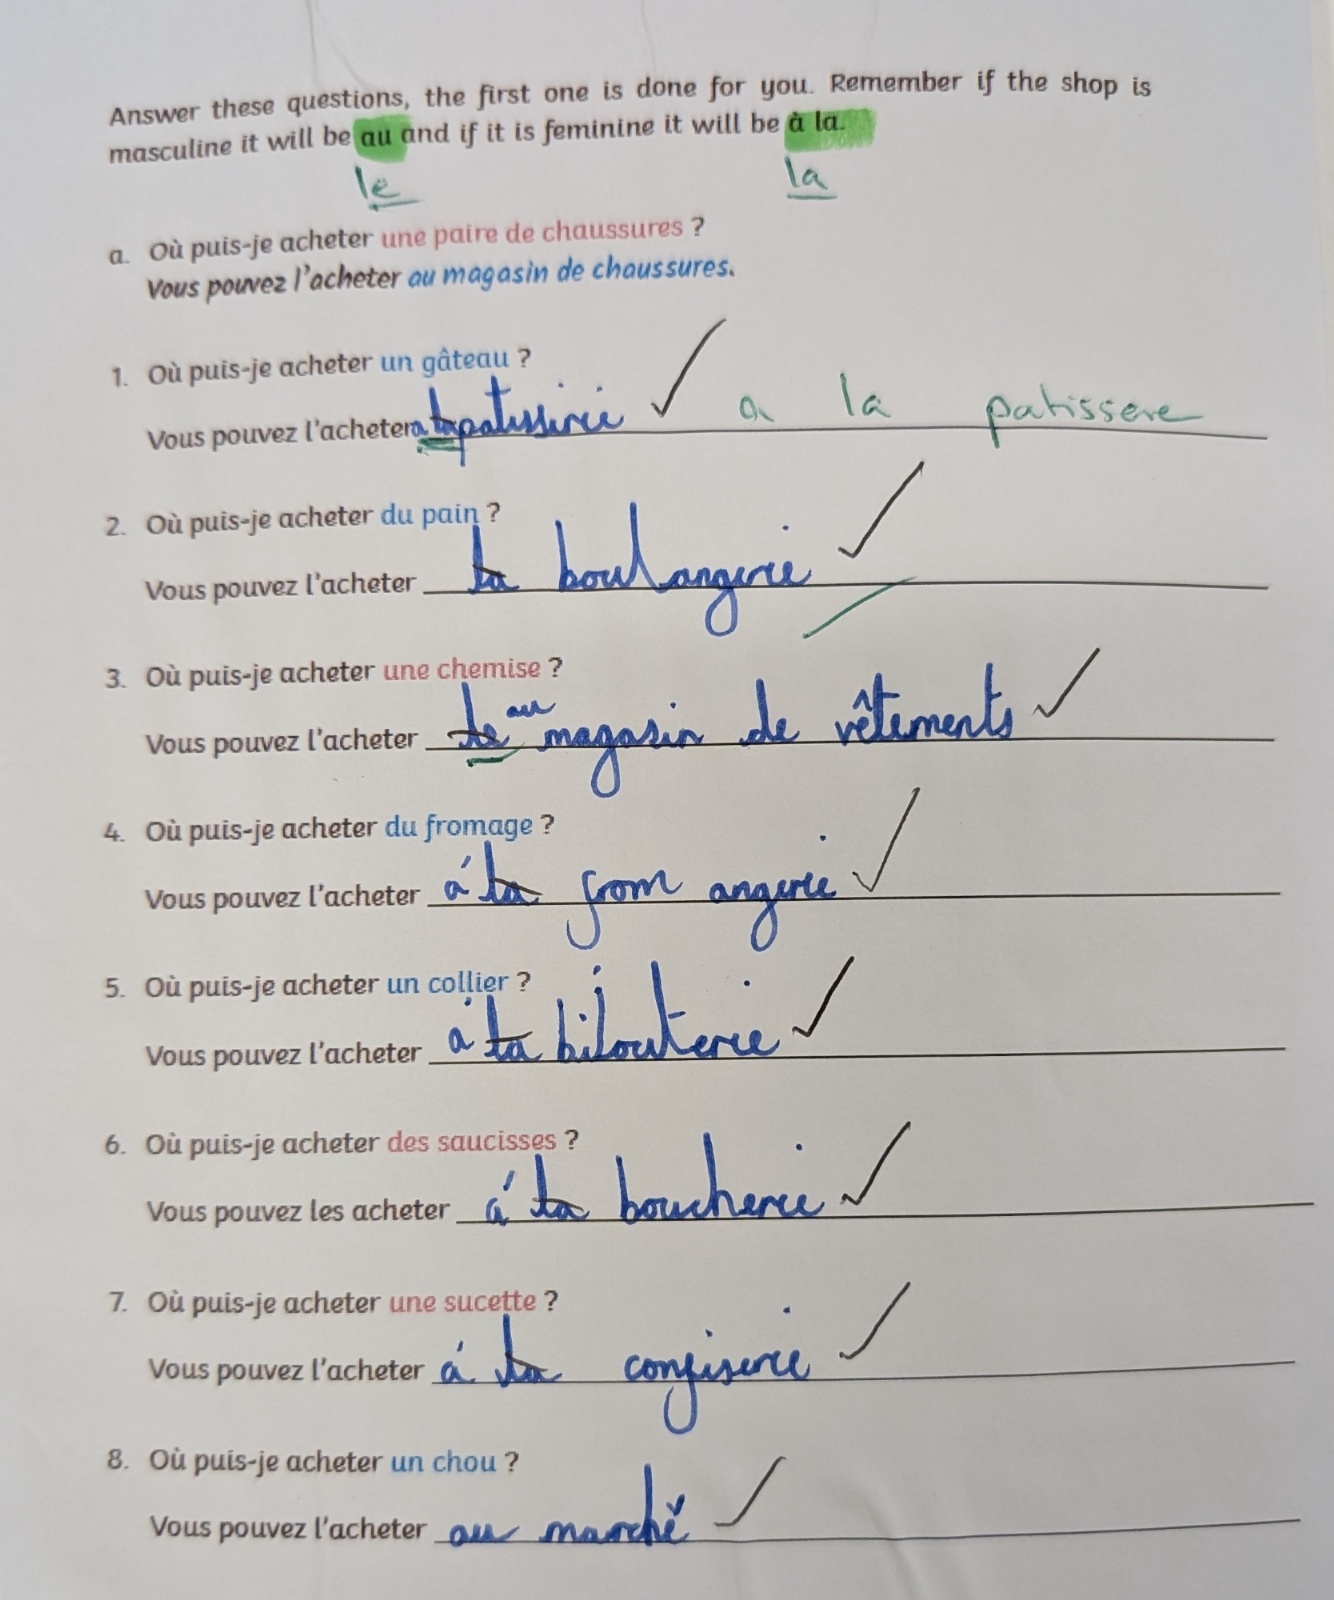 Answer these questions, the first one is done for you. Remember if the shop is
masculine it will be au and if it is feminine it will be à la.
le la
a. Où puis-je acheter une paire de chaussures ?
Vous pouvez l'acheter au magasin de chaussures.
1. Où puis-je acheter un gâteau ?
Vous pouvez l'acheter a la patisserie a la patissere
2. Où puis-je acheter du pain ?
Vous pouvez l'acheter la boulangerie
3. Où puis-je acheter une chemise ?
Vous pouvez l'acheter le au magasin de vêtements
4. Où puis-je acheter du fromage ?
Vous pouvez l'acheter á la from angerie
5. Où puis-je acheter un collier ?
Vous pouvez l'acheter á la bijouterie
6. Où puis-je acheter des saucisses ?
Vous pouvez les acheter á la boucherie
7. Où puis-je acheter une sucette ?
Vous pouvez l'acheter á la confiserie
8. Où puis-je acheter un chou ?
Vous pouvez l'acheter au marché